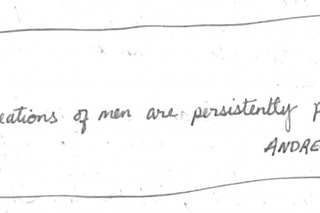 eations of men are persistently p
ANDRE